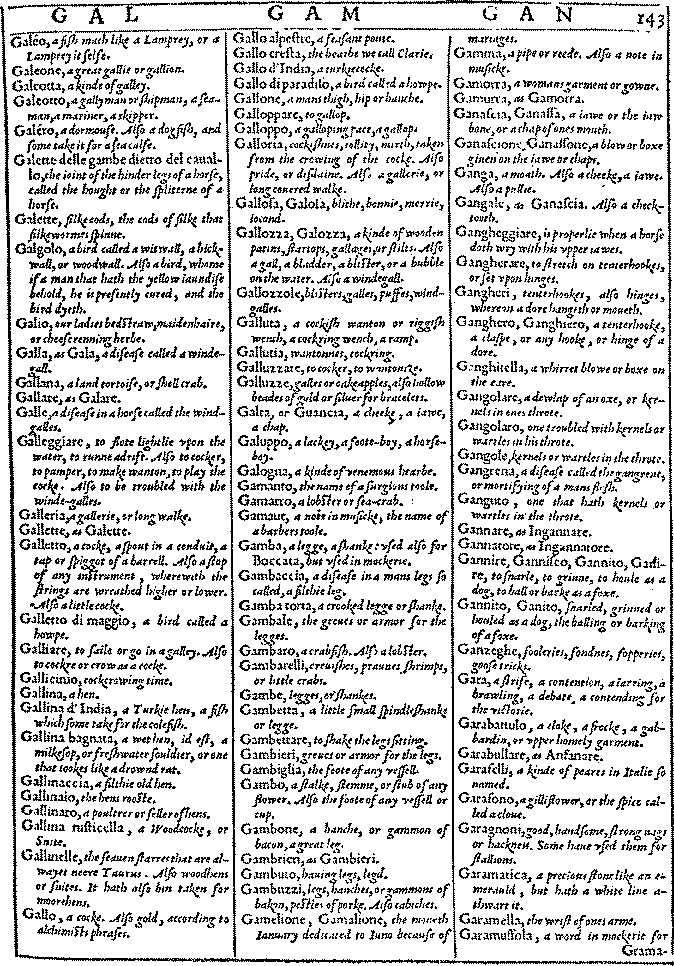 GAL GAM GAN 143
Galéo, a fish much like a Lamprey, or a
Lamprey it selfe.
Galeone, a great gallie or gallion.
Galeotta, a kinde of galley.
Galeotto, a gally man or shipman, a sea-
man, a mariner, a skipper.
Galéro, a dormouse. Also a dogfish, and
some take it for a sea calfe.
Galette delle gambe dietro del caual-
lo, the ioint of the hinder legs of a horse,
called the hought or the splitterne of a
horse.
Galette, silke cods, the cods of silke that
silkewormes spinne.
Galgolo, a bird called a wiswall, a hick-
wall, or woodwall. Also a bird, whome
if a man that hath the yellow iaundise
behold, he is presently cured, and the
bird dyeth.
Galio, our ladies bedstraw, maidenhaire,
or cheeserenning herbe.
Galla, as Gala, a disease called a winde-
gall.
Gallana, a land tortoise, or shell crab.
Gallare, as Galare.
Galle, a disease in a horse called the wind-
galles.
Galleggiare, to flote lightlie vpon the
water, to runne adrift. Also to cocker,
to pamper, to make wanton, to play the
cocke. Also to be troubled with the
winde-galles.
Galleria, a gallerie, or long walke.
Gallette, as Galette.
Galletto, a cocke, a spout in a conduit, a
tap or spiggot of a barrell. Also a stop
of any instrument, wherewith the
strings are wreathed higher or lower.
Also a little cocke.
Galletto di maggio, a bird called a
howpe.
Galliare, to saile or go in a galley. Also
to cocke or crow as a cocke.
Gallicinio, cockcrowing time.
Gallina, a hen.
Gallina d'India, a Turkie hen, a fish
which some take for the colefish.
Gallina bagnata, a wet hen, id est, a
milkesop, or freshwater souldier, or one
that lookes like a drownd rat.
Gallinaccia, a filthie old hen.
Gallinaio, the hens rooste.
Gallinaro, a poultrer or seller of hens.
Gallina rusticella, a Woodcocke, or
Snite.
Gallinelle, the seauen starres that are al-
wayes neere Taurus. Also woodhens
or snites. It hath also bin taken for
moorehens.
Gallo, a cocke. Also gold, according to
alchimists phrases.
Gallo alpestre, a feasant pome.
Gallo cresta, the hearbe we call Clarie.
Gallo d'India, a turkie cocke.
Gallo di paradiso, a bird called a howpe.
Gallone, a mans thigh, hip or hanche.
Galloppare, to gallop.
Galloppo, a galloping pace, a gallop.
Galloria, cockishnes, iollity, mirth, taken
from the crowing of the cocke. Also
pride, or disdaine. Also a gallerie, or
long couered walke.
Gallosa, Galosa, blithe, bonnie, merrie,
iocond.
Gallozza, Galozza, a kinde of wooden
patins, startops, gallages, or stilts. Also
a gall, a bladder, a blister, or a bubble
on the water. Also a windegall.
Gallozzole, blisters, galles, puffes, wind-
galles.
Galluta, a cockish wanton or riggish
wench, a cockring wench, a ramp.
Gallutia, wantonnes, cockring.
Galluzzare, to cocker, to wantonize.
Galluzze, galles or oakeapples, also hallow
beades of gold or siluer for bracelets.
Galta, or Guancia, a cheeke, a iawe,
a chap.
Galuppo, a lackey, a foote-boy, a horse-
boy.
Galogna, a kinde of venemous hearbe.
Gamanto, the name of a surgions toole.
Gamarro, a lobster or sea-crab.
Gamaut, a note in musicke, the name of
a barbers toole.
Gamba, a legge, a shanke: vsed also for
Boccata, but vsed in mockerie.
Gambaccia, a disease in a mans legs so
called, a filthie leg.
Gamba torta, a crooked legge or shanke.
Gambale, the greues or armor for the
legges.
Gambaro, a crabfish. Also a lobster.
Gambarelli, creuishes, praunes shrimps,
or little crabs.
Gambe, legges, or shankes.
Gambetta, a little small spindleshanke
or legge.
Gambettare, to shake the legs sitting.
Gambieri, greues or armor for the legs.
Gambiglia, the foote of any vessell.
Gambo, a stalke, stemme, or stub of any
flower. Also the foote of any vessell or
cup.
Gambone, a hanche, or gammon of
bacon, a great leg.
Gambrien, as Gambieri.
Gambuto, hauing legs, legd.
Gambuzzi, legs, hanches, or gammons of
bakon, pesties of porke. Also cabiches.
Gamelione, Gamalione, the moneth
Ianuary dedicated to Iuno because of
mariages.
Gamma, a pipe or reede. Also a note in
musicke.
Gamorra, a womans garment or gowne.
Gamurra, as Gamorra.
Ganascia, Ganassa, a iawe or the iaw
bone, or a chap of ones mouth.
Ganascione, Ganassone, a blow or boxe
giuen on the iawe or chaps.
Ganga, a mouth. Also a cheeke, a iawe.
Also a pullie.
Gangale, as Ganascia. Also a cheek-
tooth.
Gangheggiare, is properlie when a horse
doth wry with his vpper iawes.
Gangherare, to stretch on tenterhookes,
or set vpon hinges.
Gangheri, tenterhookes, also hinges,
whereon a dore hangeth or moueth.
Ganghero, Ganghiero, a tenterhooke,
a claspe, or any hooke, or hinge of a
dore.
Ganghitella, a whirret blowe or boxe on
the eare.
Gangolare, a dewlap of an oxe, or ker-
nels in ones throte.
Gangolaro, one troubled with kernels or
wartles in his throte.
Gangole, kernels or wartles in the throte.
Gangrena, a disease called the gangrene,
or mortifying of a mans flesh.
Ganguto, one that hath kernels or
wartles in the throte.
Gannare, as Ingannare.
Gannatore, as Ingannatore.
Gannire, Gannisco, Gannito, Gani-
re, to snarle, to grinne, to houle as a
dog, to ball or barke as a foxe.
Gannito, Ganito, snarled, grinned or
houled as a dog, the balling or barking
of a foxe.
Ganzeghe, fooleries, fondnes, fopperies,
goose tricks.
Gara, a strife, a contention, a iarring, a
brawling, a debate, a contending for
the victorie.
Garabattulo, a cloke, a frocke, a gab-
bardin, or vpper homely garment.
Garabullare, as Anfanare.
Garafelli, a kinde of peares in Italie so
named.
Garafono, a gilliflower, or the spice cal-
led a cloue.
Garagnoni, good, handsome, strong nags
or hackneis. Some haue vsed them for
stallions.
Garamatica, a precious stone like an e-
merauld, but hath a white line a-
thwart it.
Garamella, the wrist of ones arme.
Garamuffola, a word in mockerie for
Grama-